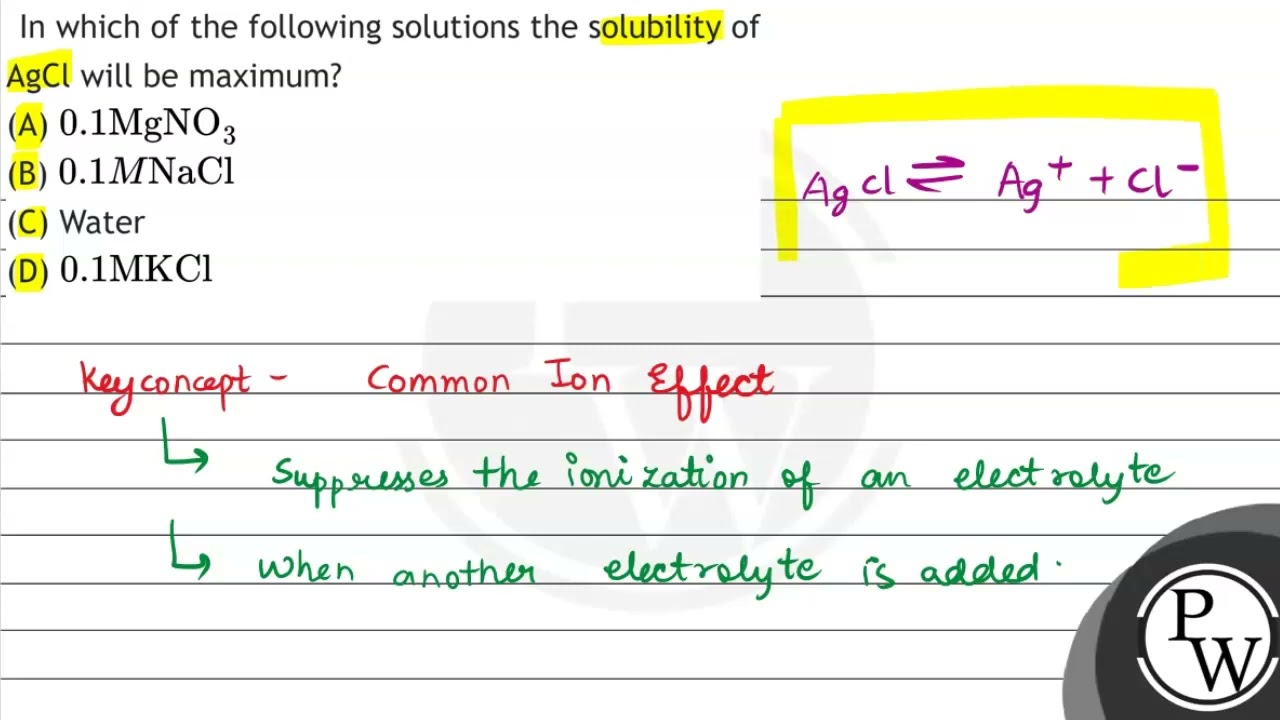 In which of the following solutions the solubility of
AgCl will be maximum?
(A) 0.1MgNO₃
(B) 0.1MNaCl
(C) Water
(D) 0.1MKCl
AgCl ⇌ Ag⁺ + Cl⁻
Key concept - Common Ion Effect
↳ Suppresses the ionization of an electrolyte
↳ when another electrolyte is added.
PW